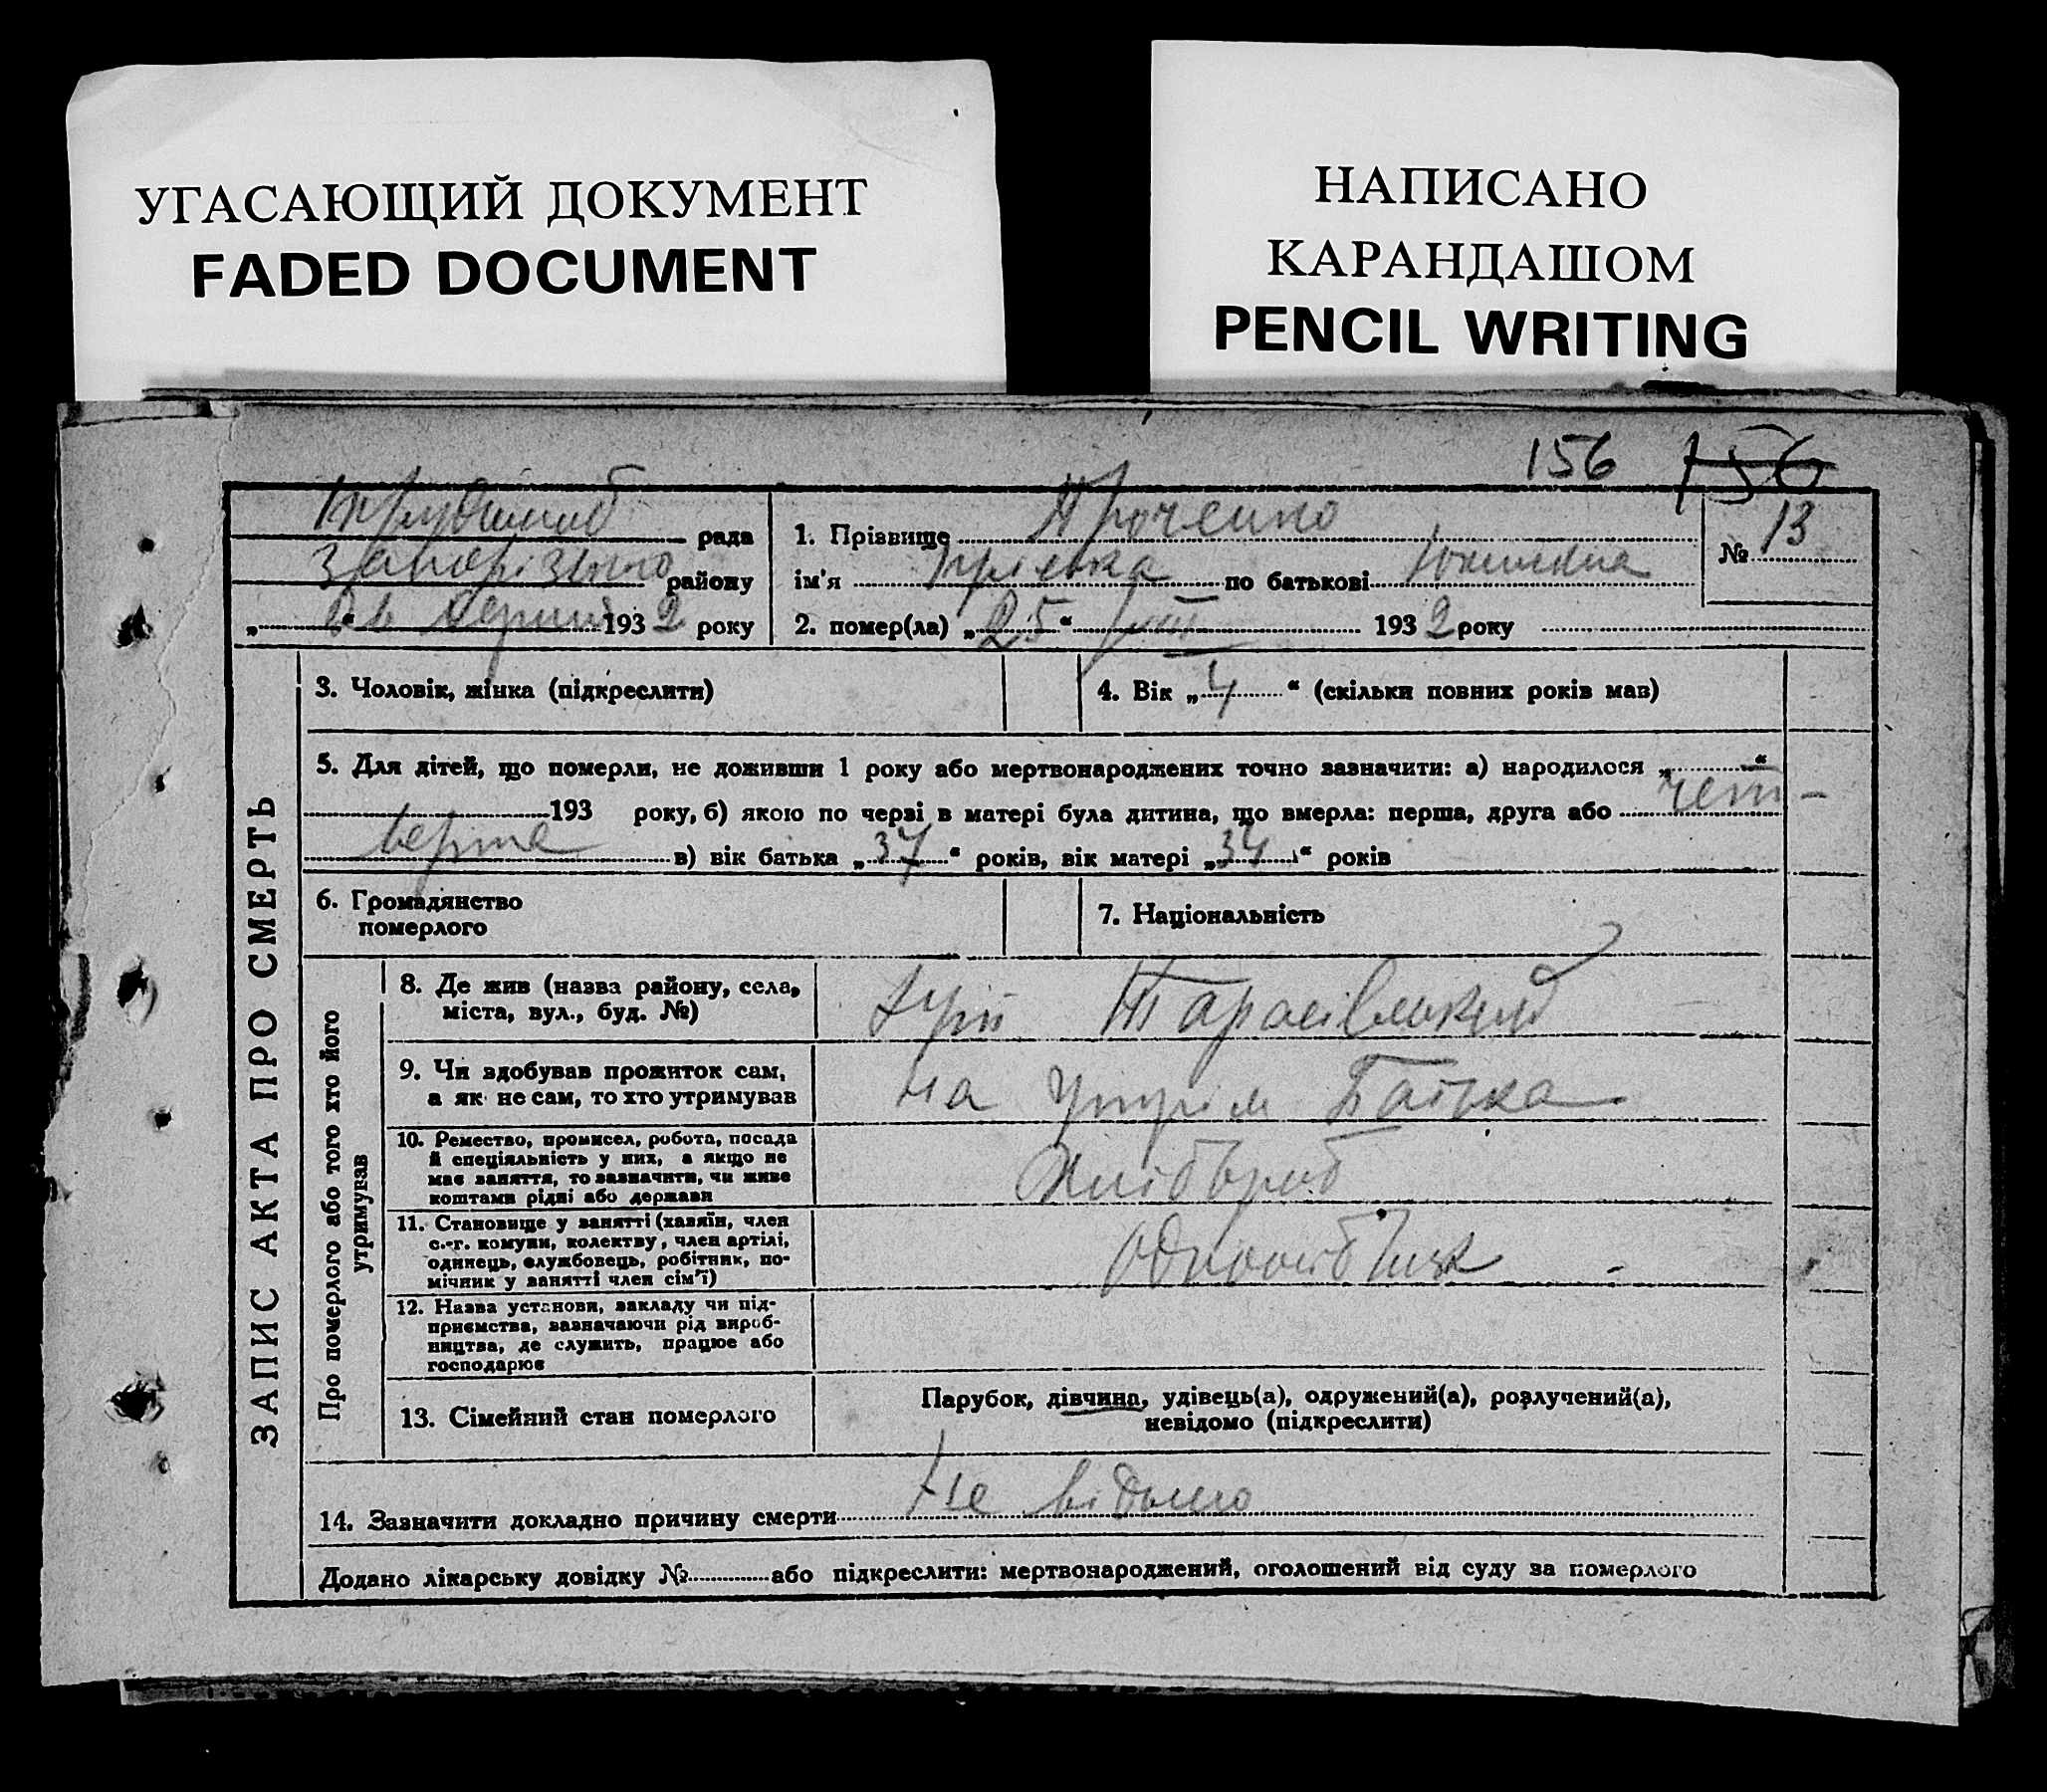 УГАСАЮЩИЙ ДОКУМЕНТ
FADED DOCUMENT
НАПИСАНО
КАРАНДАШОМ
PENCIL WRITING
156 156
рада
району
193 2 року
1. Прізвище
ім'я по батькові
2. помер(ла) „25“ VIII 193 2 року
№ 13
ЗАПИС АКТА ПРО СМЕРТЬ
3. Чоловік, жінка (підкреслити)
4. Вік „4“ (скільки повних років мав)
5. Для дітей, що померли, не доживши 1 року або мертвонароджених точно зазначити: а) народилося „ “
193 року, б) якою по черзі в матері була дитина, що вмерла: перша, друга або чет-
верта в) вік батька „37“ років, вік матері „34“ років
6. Громадянство
померлого
7. Національність
Про померлого або того хто його
утримував
8. Де жив (назва району, села,
міста, вул., буд. №)
9. Чи здобував прожиток сам,
а як не сам, то хто утримував
на Батька
10. Ремество, промисел, робота, посада
й спеціяльність у них, а якщо не
має заняття, то зазначити, чи живе
коштами рідні або держави
11. Становище у занятті (хазяїн, член
с.-г. комуни, колективу, член артілі,
одинець, службовець, робітник, по-
мічник у занятті член сім'ї)
12. Назва установи, закладу чи під-
приємства, зазначаючи рід вироб-
ництва, де служить, працює або
господарює
13. Сімейний стан померлого
Парубок, дівчина, удівець(а), одружений(а), розлучений(а),
невідомо (підкреслити)
14. Зазначити докладно причину смерти Не відомо
Додано лікарську довідку № або підкреслити: мертвонароджений, оголошений від суду за померлого